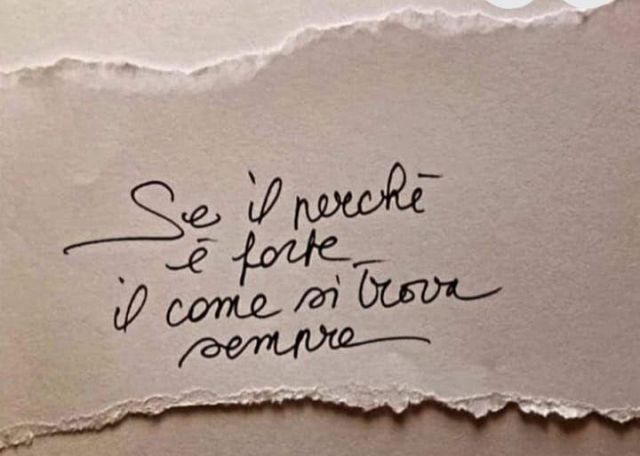 Se il perchē
ē forte
il come si trova
sempre